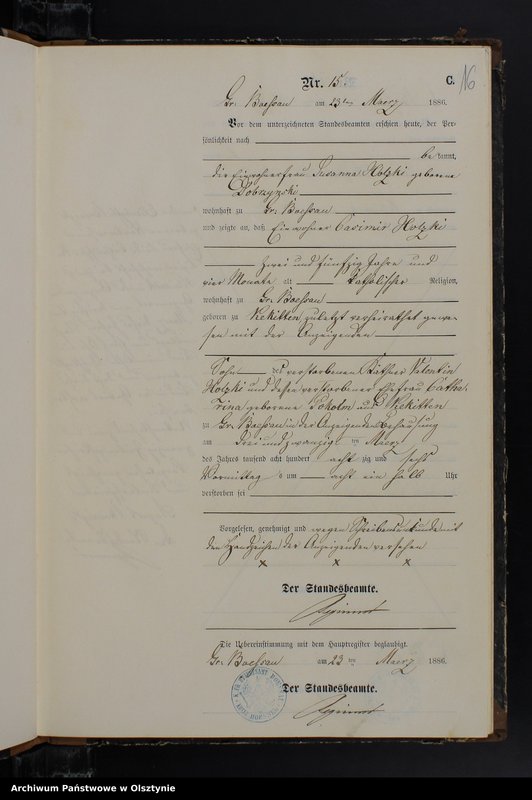 Nr. 15.
C.
16
Gr. Boessau am 23ten Maerz 1886.
Vor dem unterzeichneten Standesbeamten erschien heute, der Per-
sönlichkeit nach
bekannt,
die Einwohnerfrau Susanna Hotzki geborene
Dobrzynski
wohnhaft zu Gr. Boessau
und zeigte an, daß Einwohner Casimir Hotzki
zwei und fünfzig Jahre und
vier Monate alt katholischer Religion,
wohnhaft zu Gr. Boessau
geboren zu Kekitten zuletzt verheirathet gewe-
sen mit der Anzeigenden
Sohn des verstorbenen Käthner Valentin
Hotzki und dessen verstorbener Ehefrau Catha-
rina geborene aus Kekitten
zu Gr. Boessau in der Anzeigenden Behausung
am drei und zwanzigten Maerz
des Jahres tausend acht hundert achtzig und sechs
Vormittag um acht ein halb Uhr
verstorben sei
Vorgelesen, genehmigt und wegen Schreibensunkunde mit
den Handzeichen der Anzeigenden versehen
x x x
Der Standesbeamte.
Die Uebereinstimmung mit dem Hauptregister beglaubigt.
Gr. Boessau am 23ten Maerz 1886.
Der Standesbeamte.
Archiwum Państwowe w Olsztynie